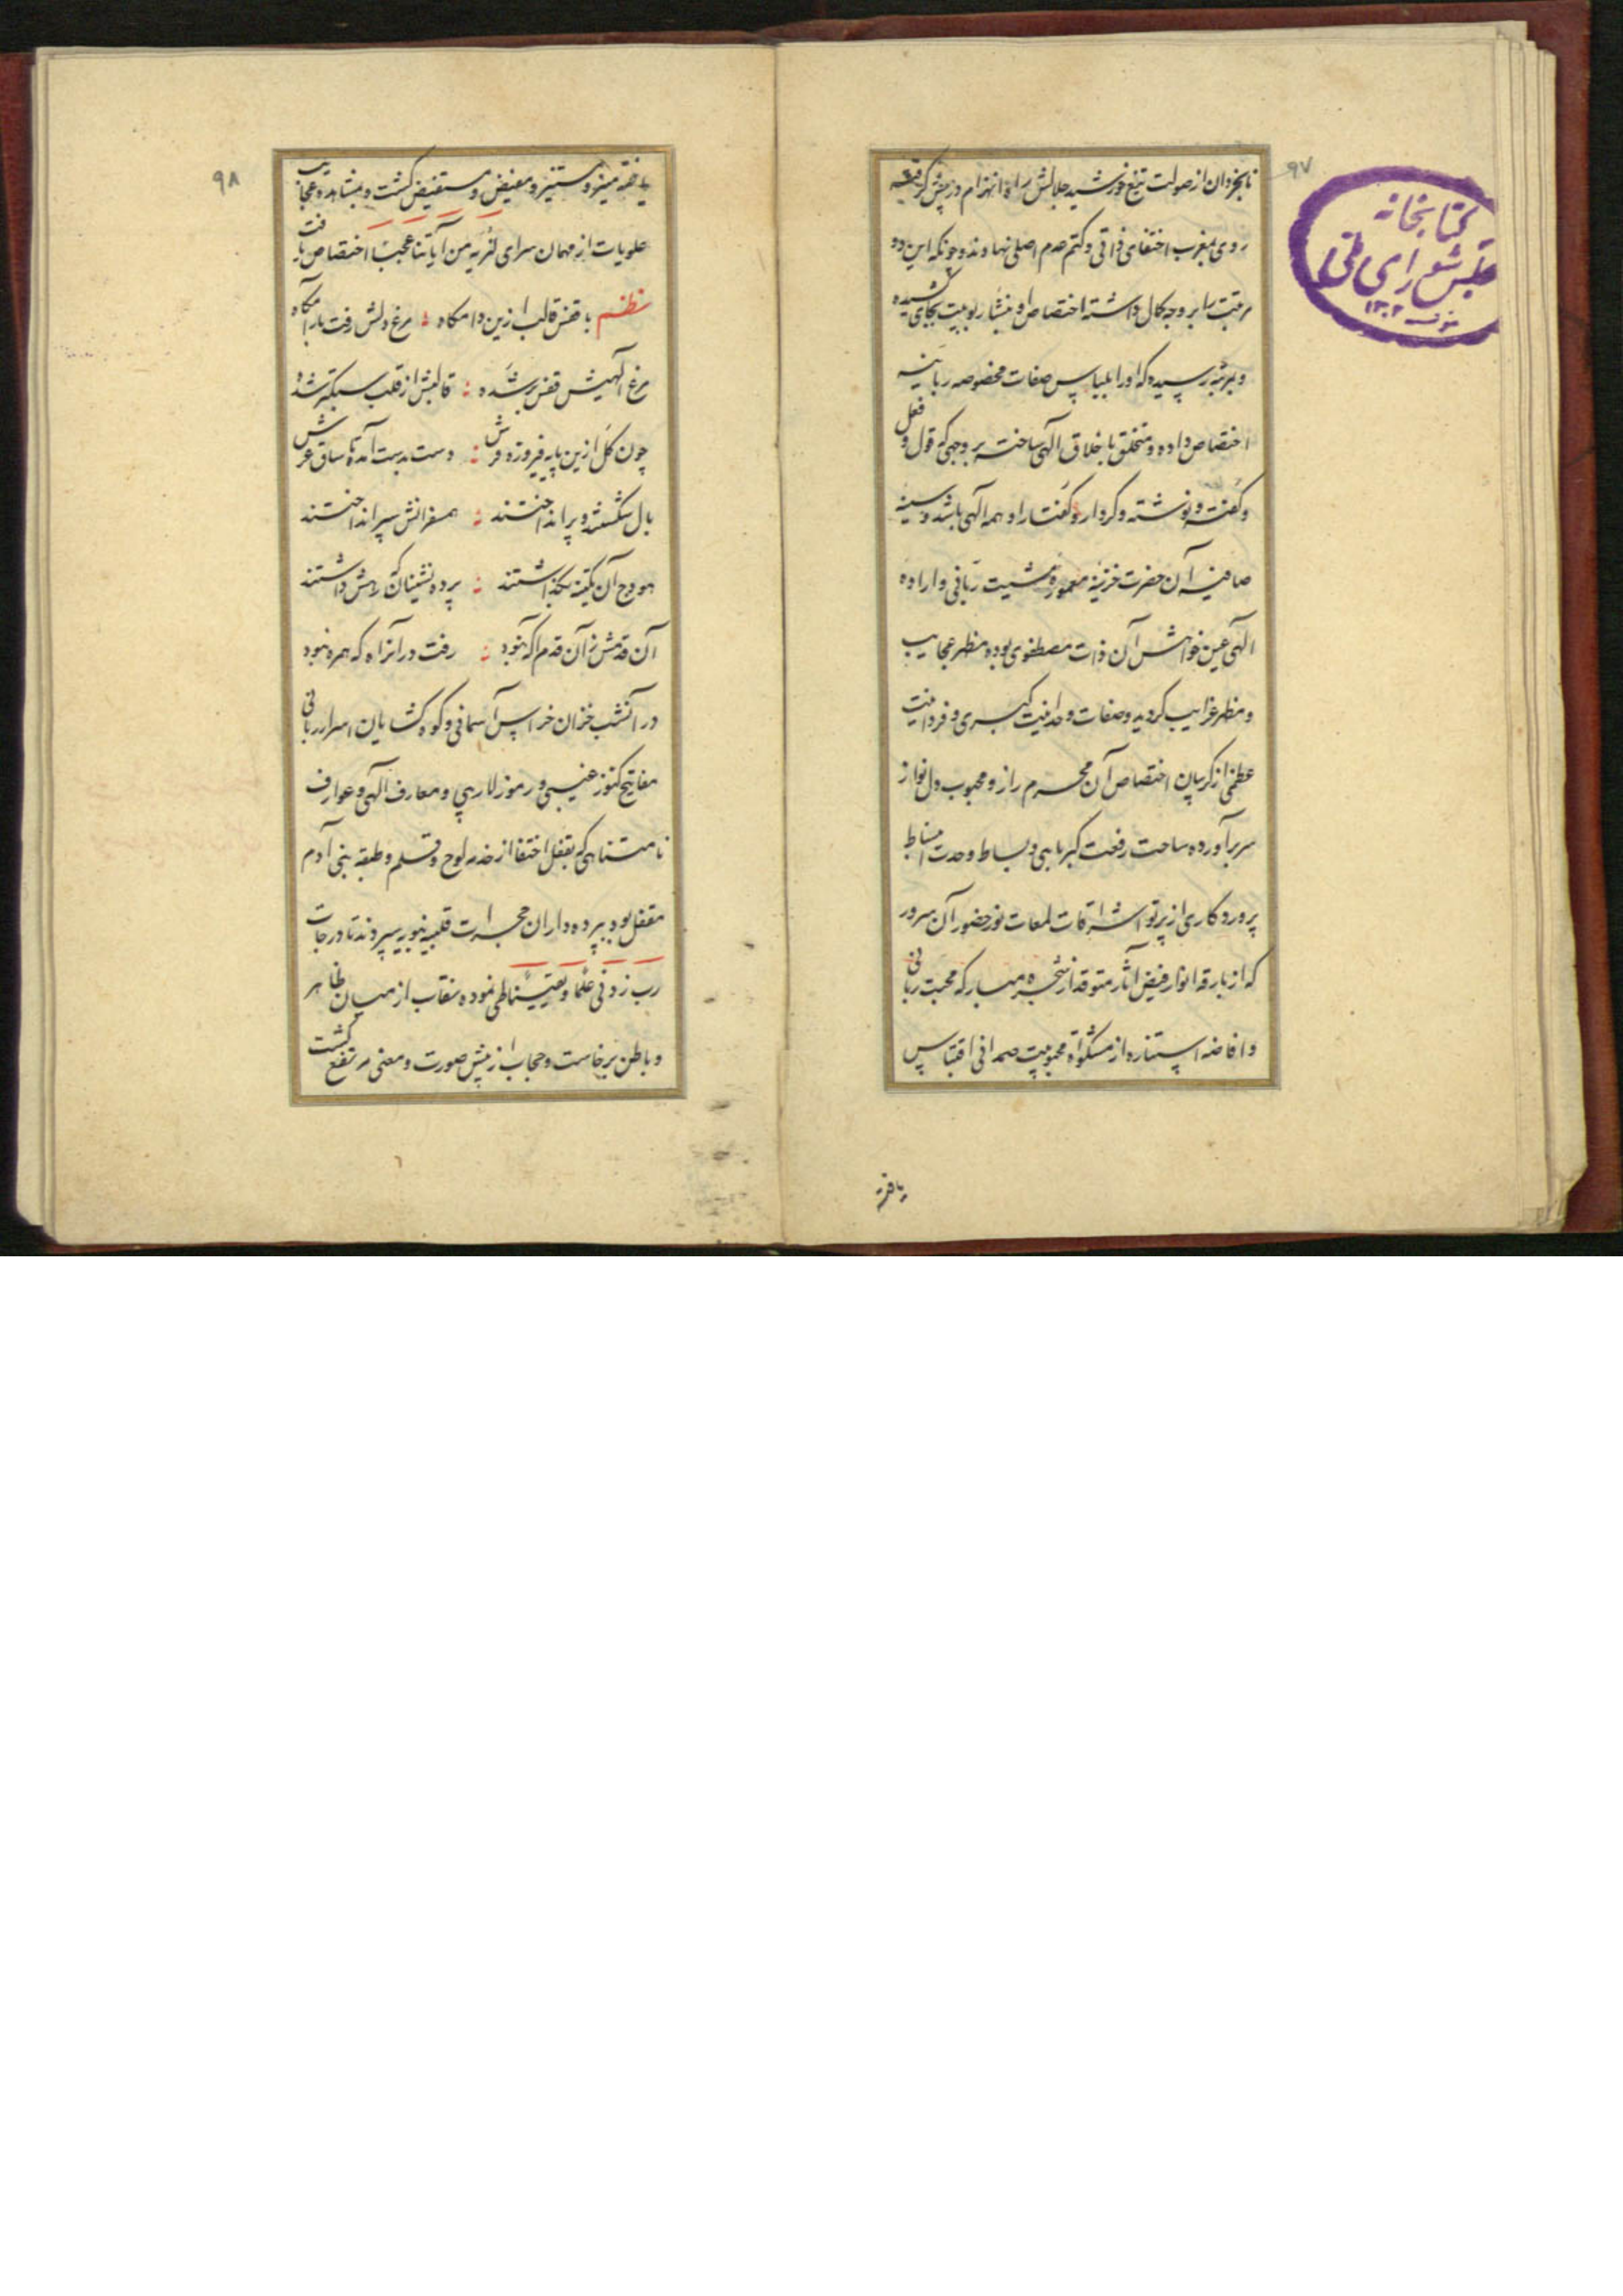 ۹۷
کتابخانه
مجلس شورای ملی
۱۳۰۲
نابخردان از صولت تیغ خورشید جلالش راه انهزام در پیش گرفته
روی بمغرب اختفای ذاتی و کتم عدم اصلی نهادند و چونکه این دو
مرتبت را بر وجه کمال داشته اختصاص او بنشأ ربوبیت بجای رسیده
و بمرتبه رسیده که او را بلباس صفات مخصوصه ربانیه
اختصاص داده و متخلق باخلاق آلهی ساخته بر وجهی که قول و فعل
و گفته و نوشته و کردار و گفتار او همه آلهی باشد و سینه
صافیه آن حضرت خزینه معموره مشیت ربانی و اراده
آلهی عین خواهش آن ذات مصطفوی بوده مظهر عجایب
و مظهر غرایب گردید و صفات وحدانیت کبری و فردانیت
عظمی از گریبان اختصاص آن محرم راز و محبوب دلنواز
سر برآورده ساحت رفعت کبریایی و بساط وحدت انبساط
پروردگاری از پرتو اشراقات لمعات نور حضور آن سرور
که از بارقه انوار فیض آثار متوقد از شجره مبارکه محبت ربانی
و افاضه استناره از مشکوة محبوبیت صمدانی اقتباس
یافته
۹۸
یافته منیر و مستنیر و مفیض و مستفیض گشت و بمشاهده عجایب
علویات از مهمان سرای لنریه من آیاتنا عجبا اختصاص یافت
نظم با قفس قالب ازین دامگاه : مرغ دلش رفت بارامگاه
مرغ آلهیش قفس پر شده : قالبش از قلب سبکتر شده
چون گل ازین پایه فیروزه فرش : دست بدست آمده تا ساق عرش
بال شکستند و پر انداختند : همسفرانش سپر انداختند
هودج آن یکتنه بگذاشتند : پرده نشینان که رهش داشتند
آن قدمش زآن قدم آگه نبود : رفت در آنراه که همره نبود
در آنشب خزان خراس آسمانی و کوه کشایان اسرار ربانی
مفاتیح کنوز غیبی و رموز لاریبی و معارف آلهی و عوارف
نامتناهی که بقفل اختفا از خدر لوح و قلم و طبقه بنی آدم
مقفل بود بپرده داران حجرات قلبیه نبویه سپردند تا درجات
رب زدنی علما و یقینا طی نموده نقاب از میان ظاهر
و باطن برخاست و حجاب از پیش صورت و معنی مرتفع گشت